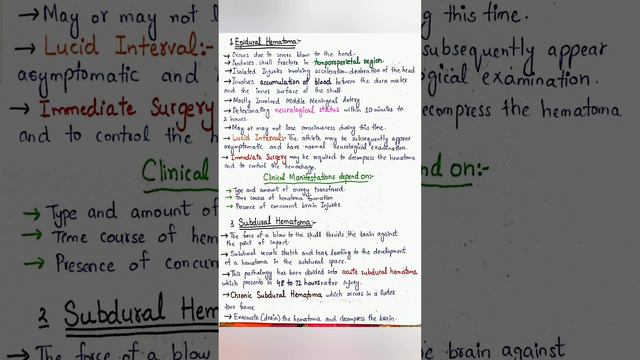 1. Epidural Hematoma:-
→ Occurs due to severe blow to the head.
→ Produces skull fracture in temporoparietal region.
→ Isolated Injuries involving acceleration-deceleration of the head.
→ Involves accumulation of blood between the dura mater
and the inner surface of the skull
→ Mostly Involved Middle Meningeal Artery
→ Deteriorating neurological status within 10 minutes to
2 hours.
→ May or may not lose consciousness during this time.
→ Lucid Interval:- The athlete may be subsequently appear
asymptomatic and have normal neurological examination.
→ Immediate Surgery may be required to decompress the hematoma
and to control the hemorrhage.
Clinical Manifestations depend on:-
→ Type and amount of energy transferred.
→ Time course of hematoma formation
→ Presence of concurrent brain Injuries.
2 Subdural Hematoma:-
→ The force of a blow to the skull thrusts the brain against
the point of impact.
→ Subdural vessels stretch and tear, leading to the development
of a hematoma in the subdural space.
→ This pathology has been divided into acute subdural hematoma
which presents in 48 to 72 hours after injury.
→ Chronic Subdural Hematoma which occurs in a later
time frame
→ Evacuate (drain) the hematoma and decompress the brain.
→ May or may not l
→ Lucid Interval:-
asymptomatic and
→ Immediate Surgery
and to control the h
Clinical
→ Type and amount of
→ Time course of hem
→ Presence of concur
2 Subdural Hem
→ The force of a blow
g this time.
subsequently appear
ogical examination.
compress the hematoma
nd on:-
e brain against